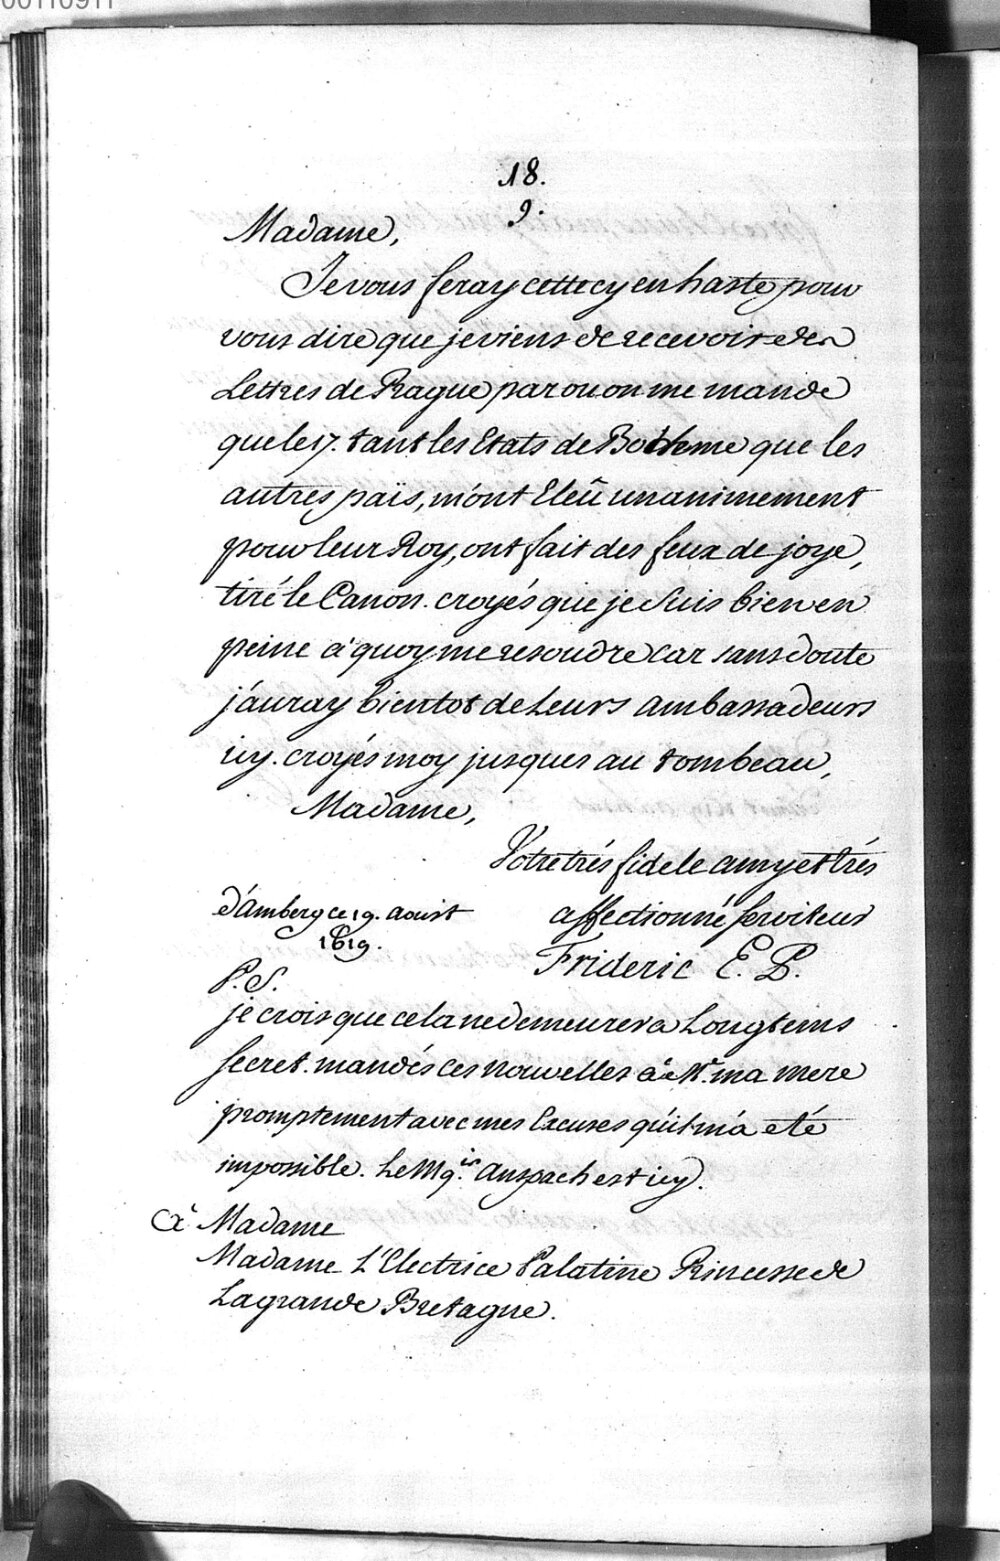 00110911
18.
9.
Madame,
Je vous feray cettecy en haste pour
vous dire que je viens de recevoir des
Lettres de Prague par ou on me mande
que le 17. tant les Etats de Boheme que les
autres païs, m'ont Eleû unanimement
pour leur Roy, ont fait des feux de joye,
tiré le Canon. croyés que je suis bien en
peine à quoy me resoudre car sans doute
j'auray bientot de Leurs ambassadeurs
icy. croyés moy jusques au tombeau,
Madame,
Votre trés fidele amy et trés
d'Amberg ce 19. aoust affectionné serviteur
1619. Frideric E. P.
P. S.
je crois que cela ne demeurera Longtems
secret. mandés ces nouvelles à Me. ma mere
promptement avec mes Excuses qu'il m'a eté
impossible. Le Mqis. Anspach est icy.
à Madame
Madame L'Electrice Palatine Princesse de
La grande Bretagne.